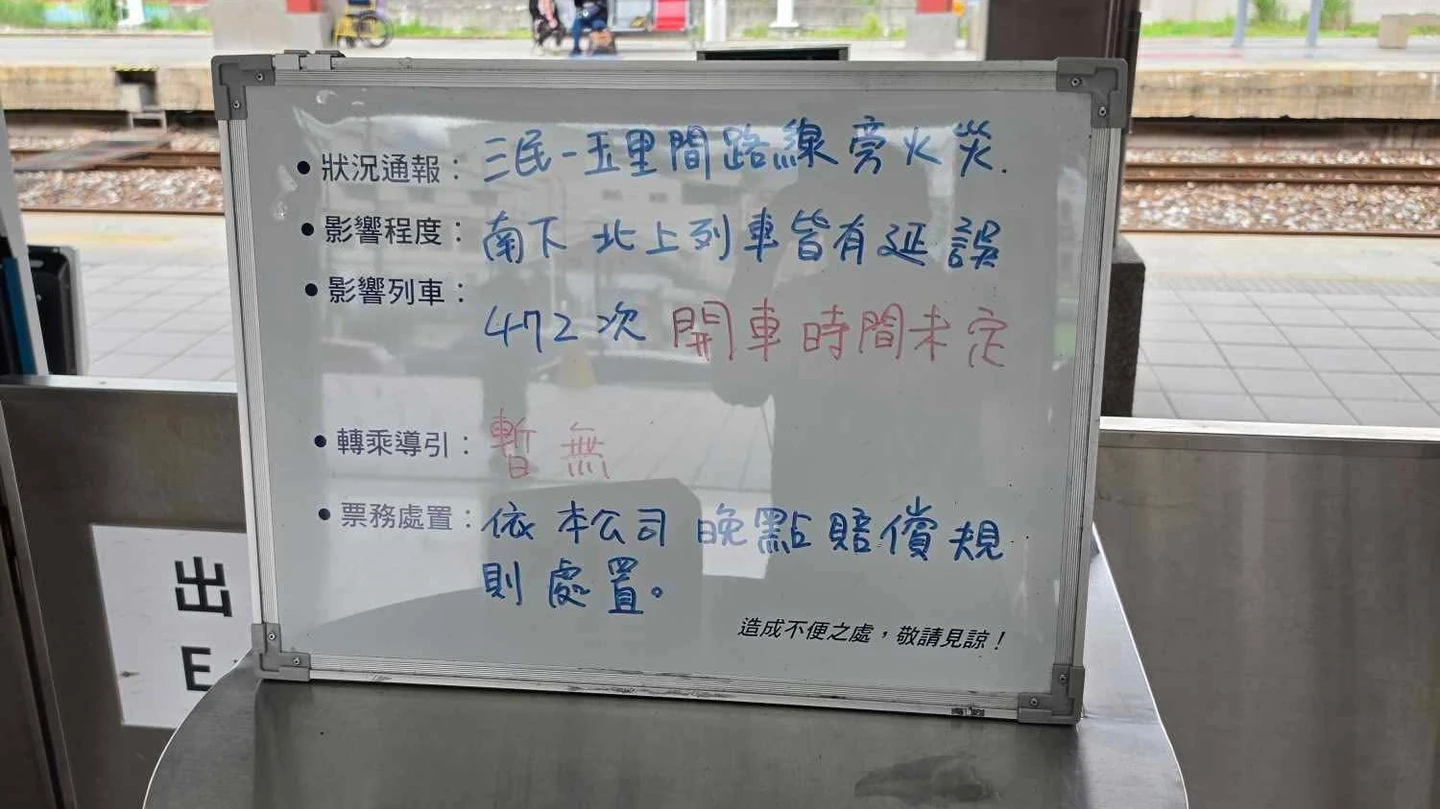 • 狀況通報： 三民-玉里間路線旁火災.
• 影響程度： 南下 北上列車皆有延誤
• 影響列車：
472次 開車時間未定
• 轉乘導引： 暫無
• 票務處置： 依本公司晚點賠償規
則處置。
造成不便之處，敬請見諒！
出
E